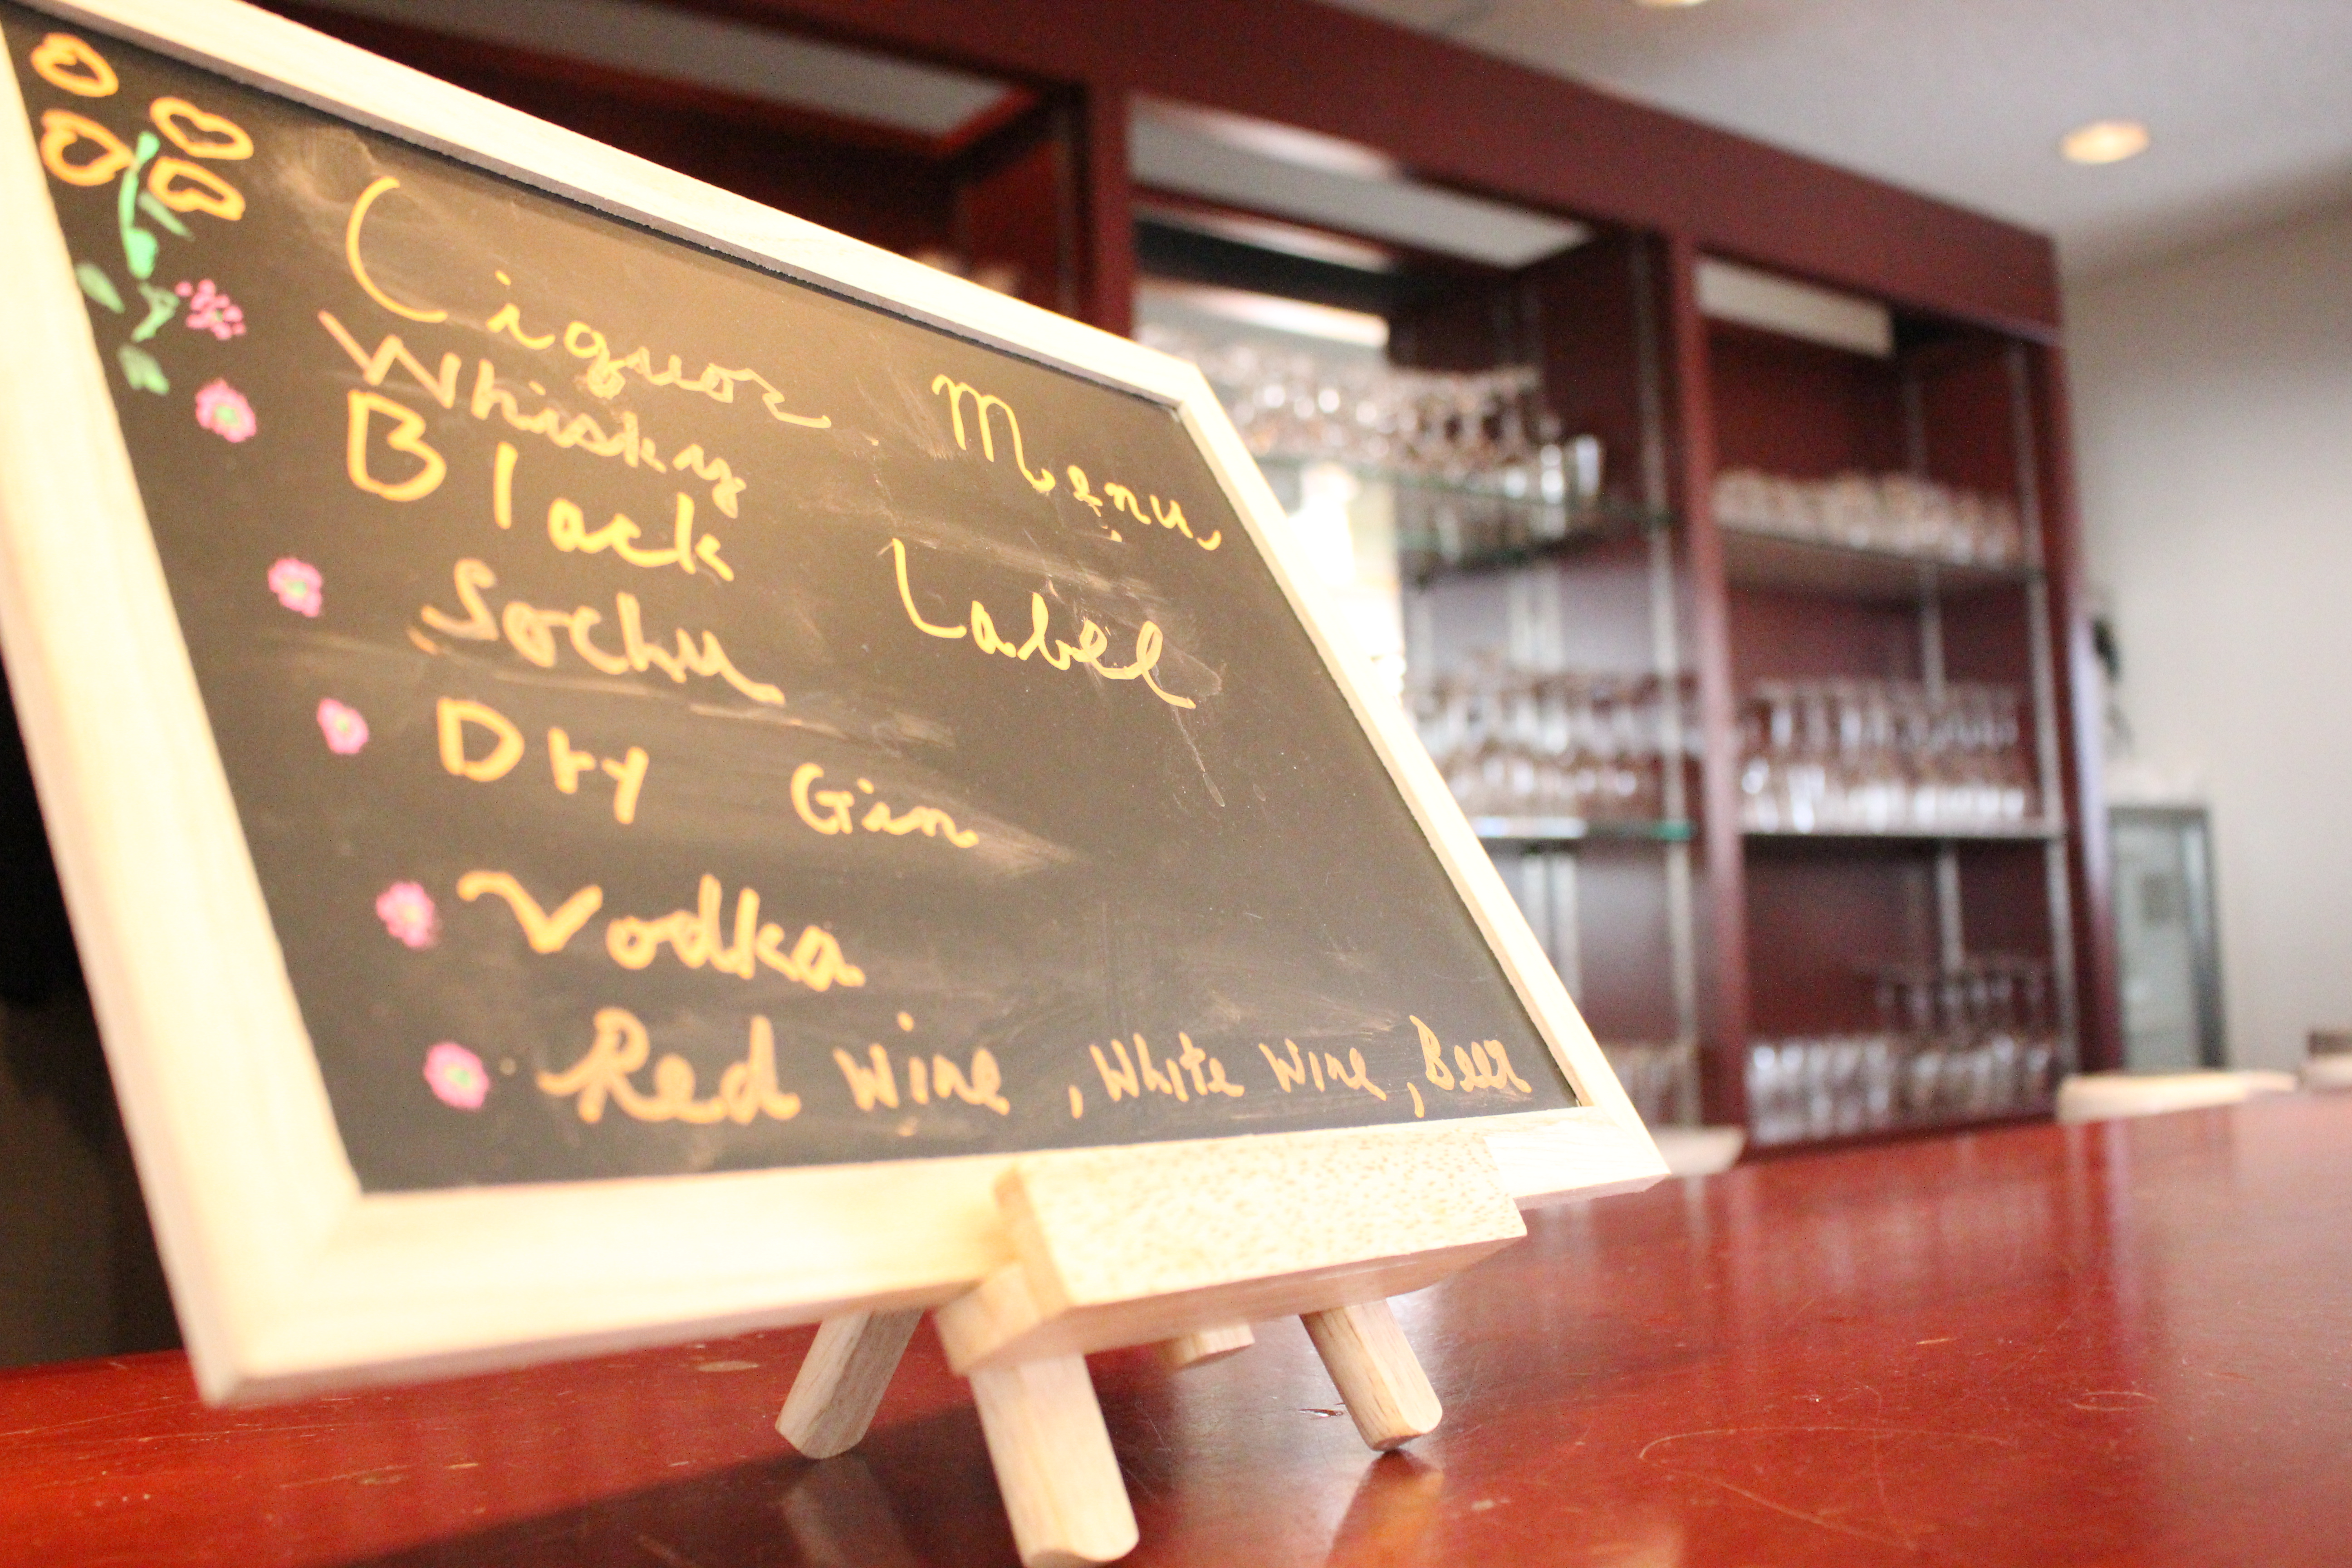 Liquor Menu
Whiskey
Black Label
Sochu
Dry Gin
Vodka
Red Wine, White Wine, Beer